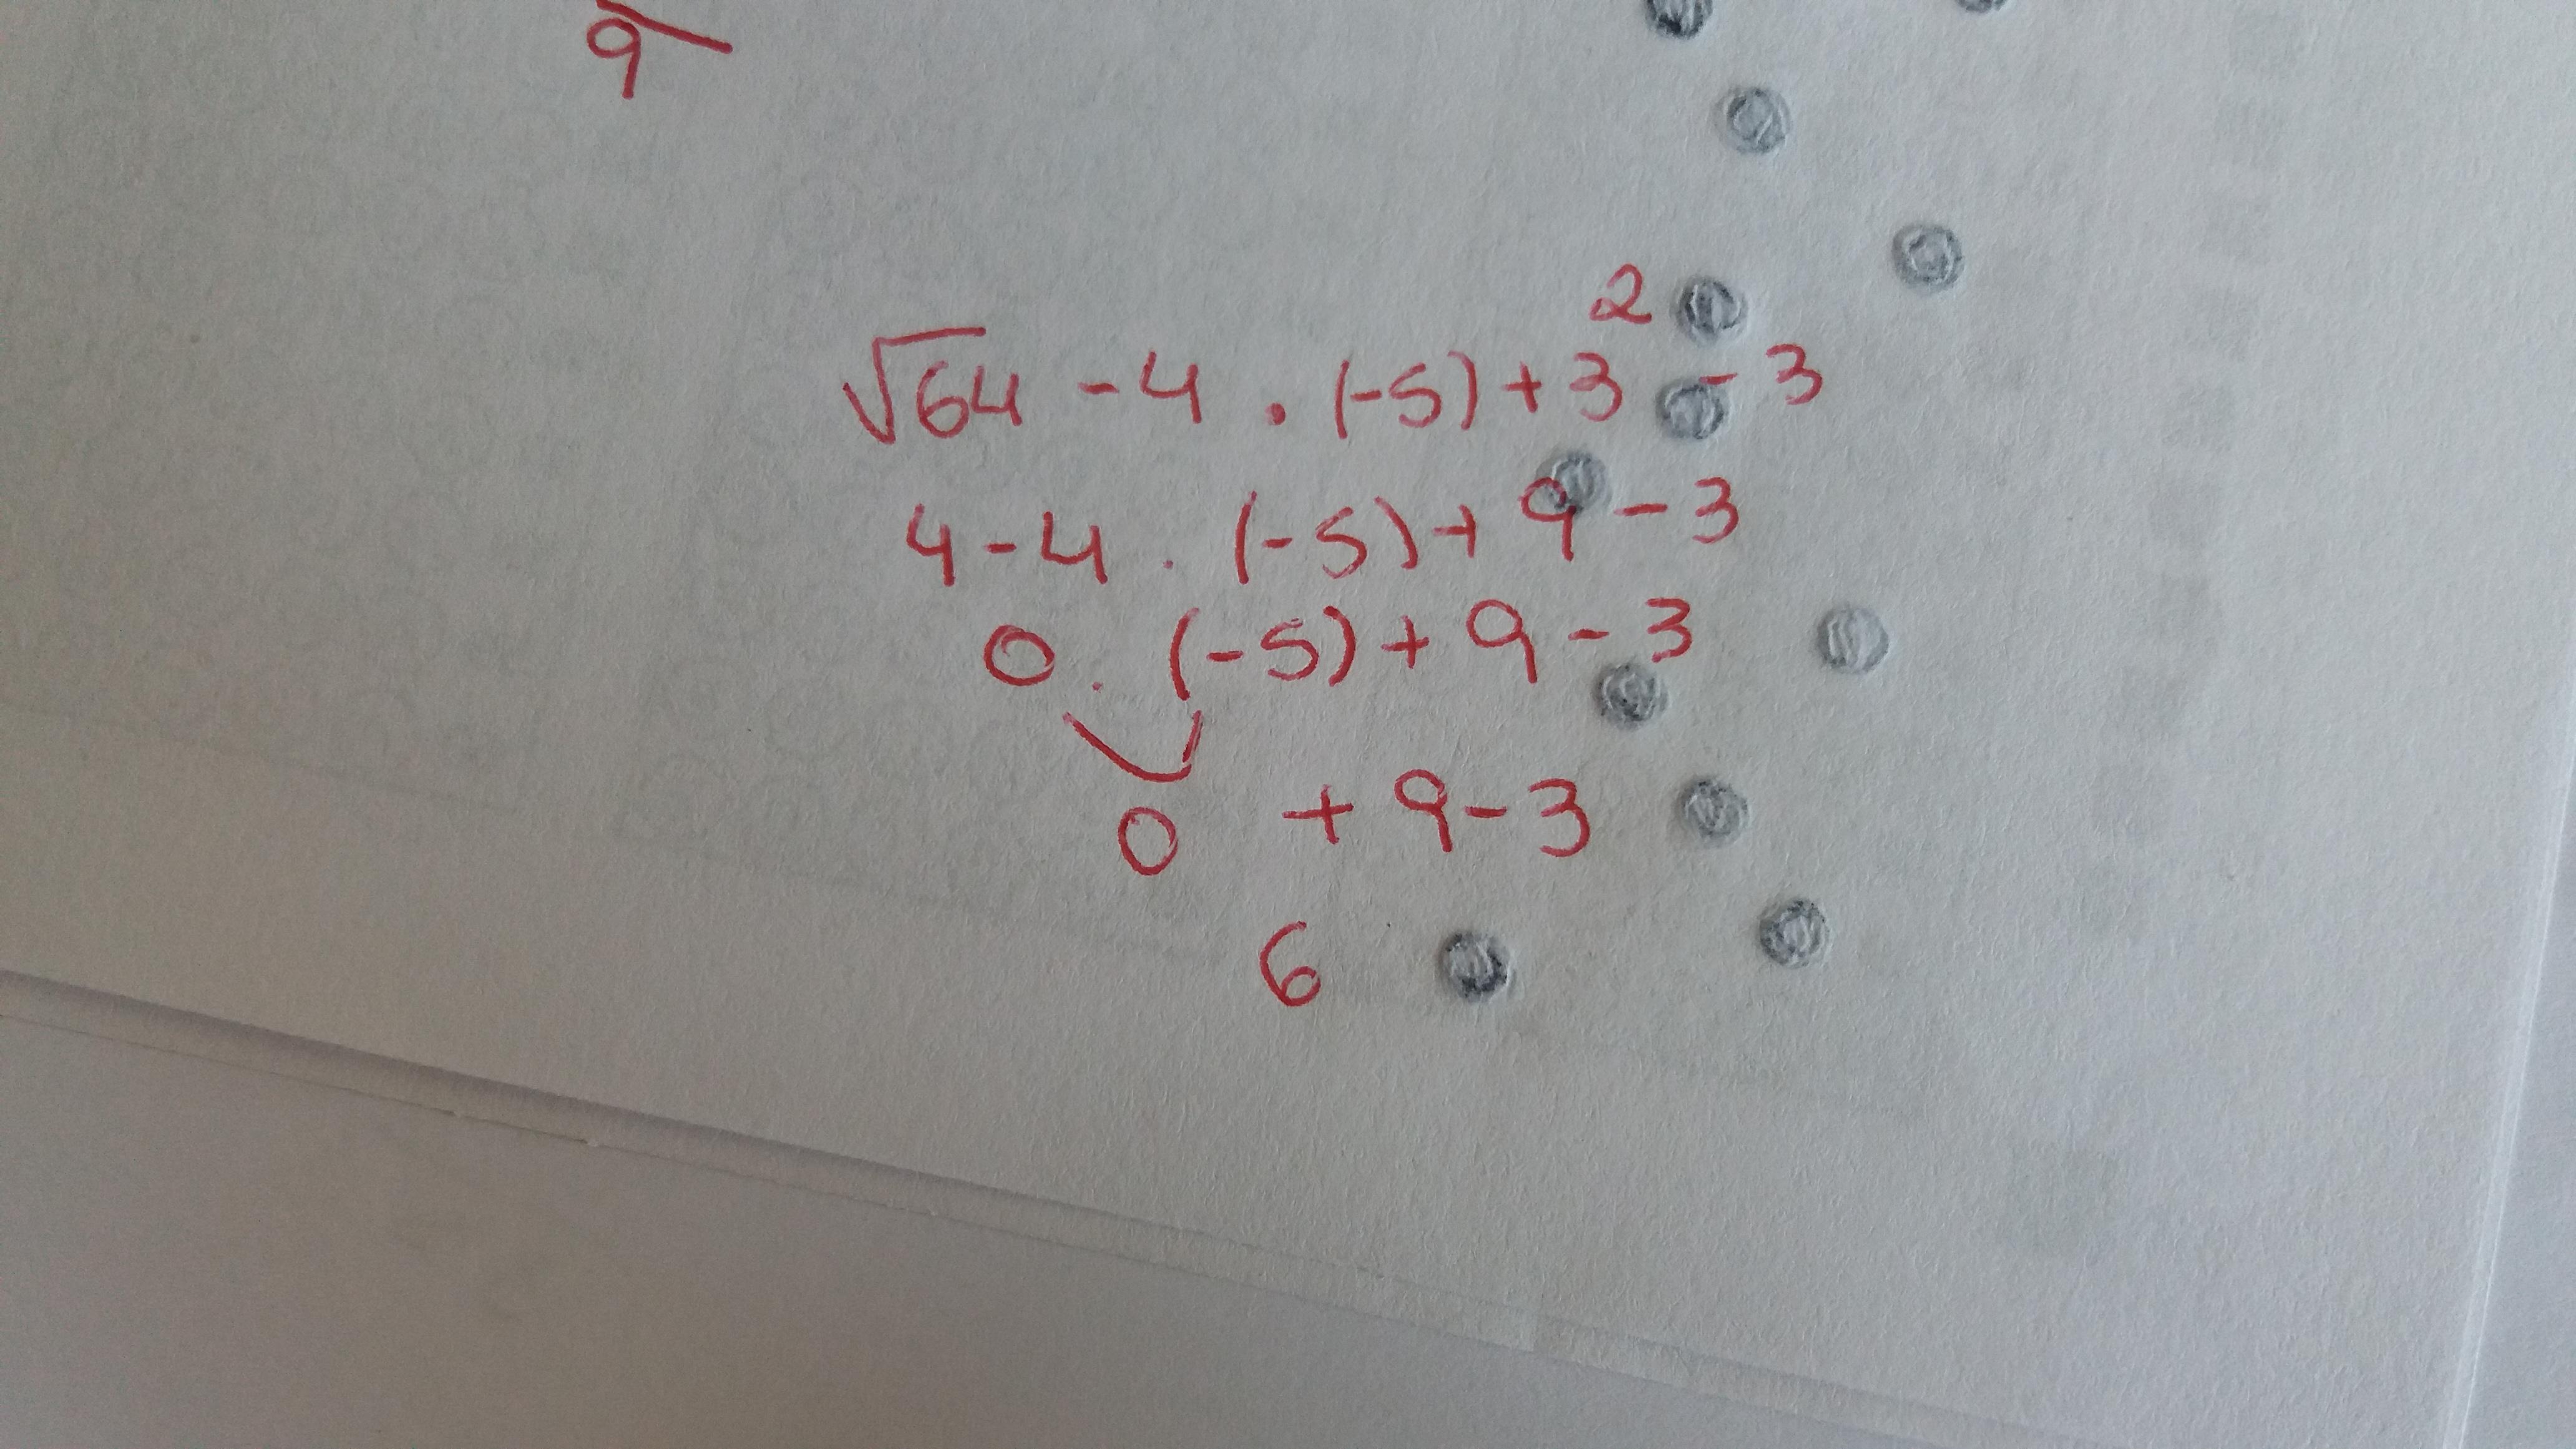 9
√64 - 4 . (-5) + 3² - 3
4 - 4 . (-5) + 9 - 3
0 . (-5) + 9 - 3
0 + 9 - 3
6